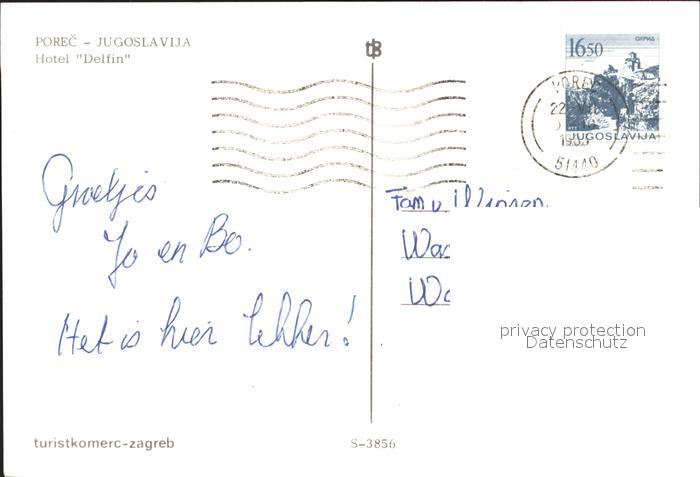 POREČ – JUGOSLAVIJA
Hotel "Delfin"
ОХРИД
16 50
JUGOSLAVIJA
51440
Groetjes
Jo en Bo.
Het is hier lekker!
Fam v
privacy protection
Datenschutz
turistkomerc-zagreb
S-3856